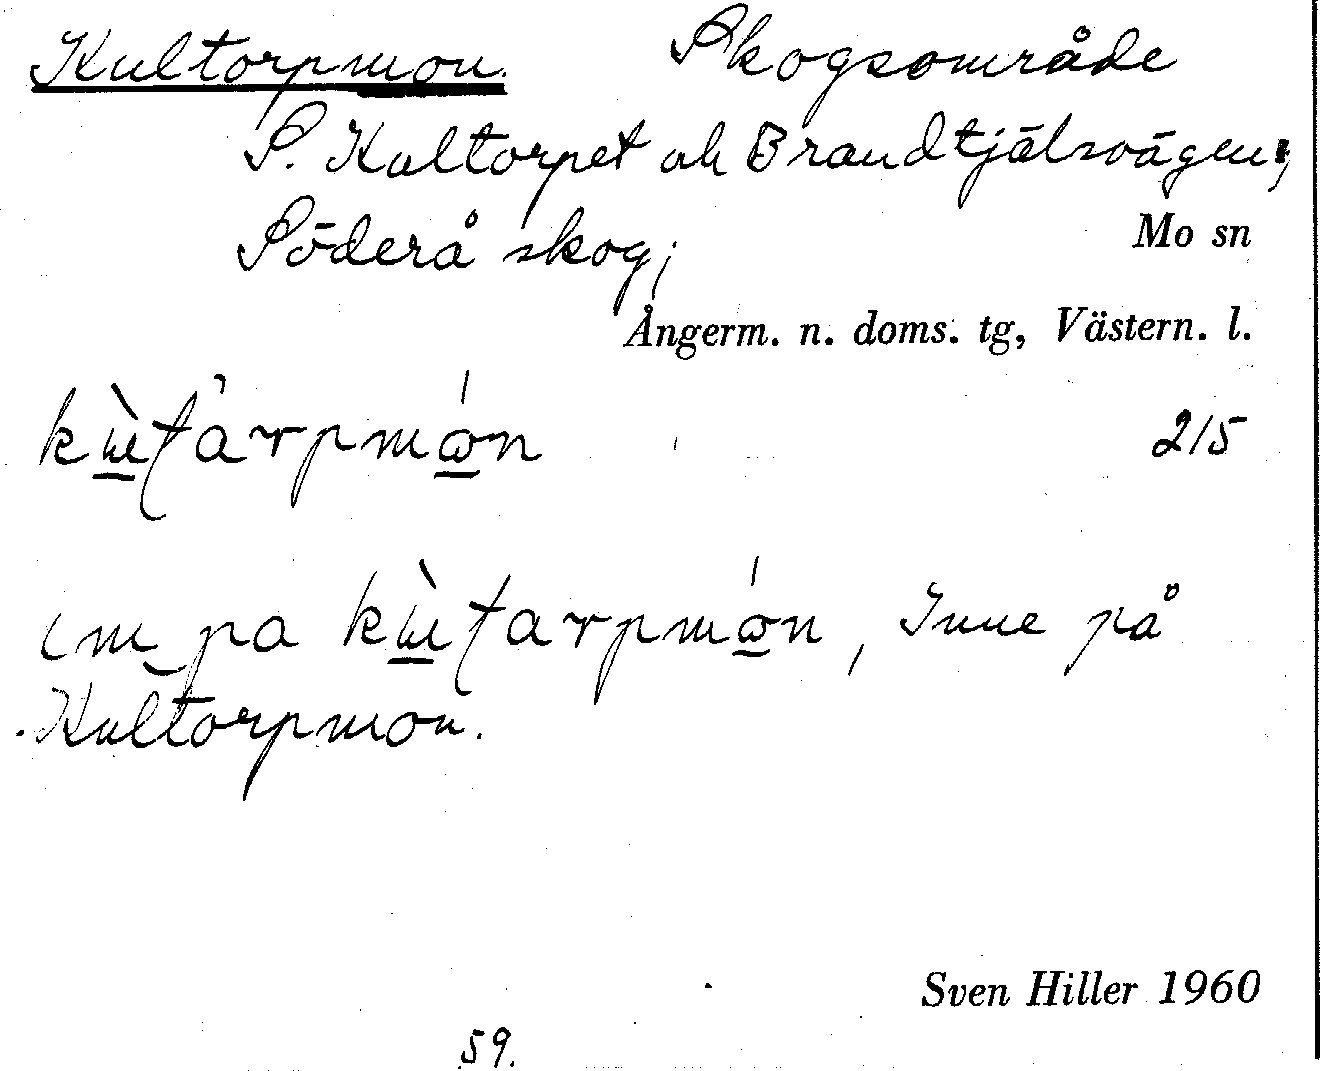 Kultorpmon. Skogsområde
S. Kultorpet ok Brandtjälsvägen,
Söderå skog;
Mo sn
Ångerm. n. doms. tg, Västern. l.
215
Inne på
Kultorpmon.
Sven Hiller 1960
59.